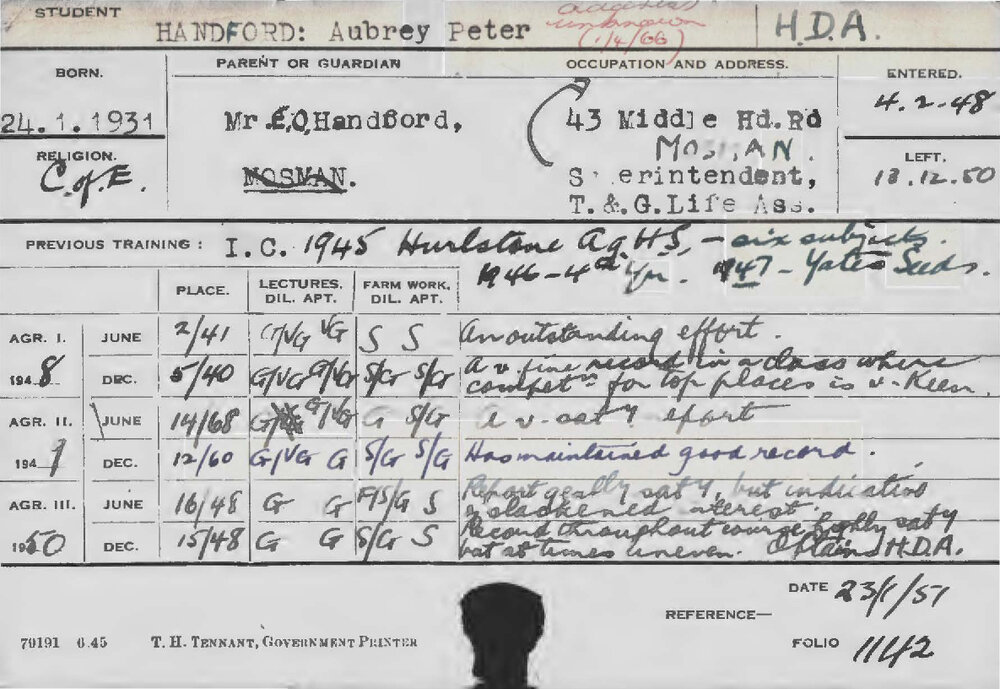 STUDENT
HANDFORD: Aubrey Peter
address
unknown
(1/4/66)
H.D.A.
BORN.
PARENT OR GUARDIAN
OCCUPATION AND ADDRESS.
ENTERED.
24.1.1931
Mr.E.O.Handford,
43 Middle Hd.Rd
4.2.48
RELIGION.
MOSMAN.
LEFT.
C. of E.
MOSMAN.
Superintendent,
13.12.50
T.&.G.Life Ass.
PREVIOUS TRAINING : I.C. 1945 Hurlstone Ag HS, - six subjects.
1946 - 4th Yr. 1947 - Yates Seeds.
PLACE.
LECTURES.
DIL. APT.
FARM WORK.
DIL. APT.
AGR. I. JUNE 2/41 G/VG VG S S An outstanding effort.
1948 DEC. 5/40 G/VG G/VG S/G S/G A v. fine record in a class where
compet'n for top places is v. Keen.
AGR. II. JUNE 14/68 G G/VG G S/G A v. sat'y effort
1949 DEC. 12/60 G/VG G S/G S/G Has maintained good record.
AGR. III. JUNE 16/48 G G F/S/G S Report g'eally sat'y, but indicative
of slackened interest.
1950 DEC. 15/48 G G S/G S Record throughout course highly sat'y
but at times uneven. Obtains H.D.A.
DATE 23/1/51
REFERENCE—
70191 6.45 T. H. TENNANT, GOVERNMENT PRINTER
FOLIO 1142